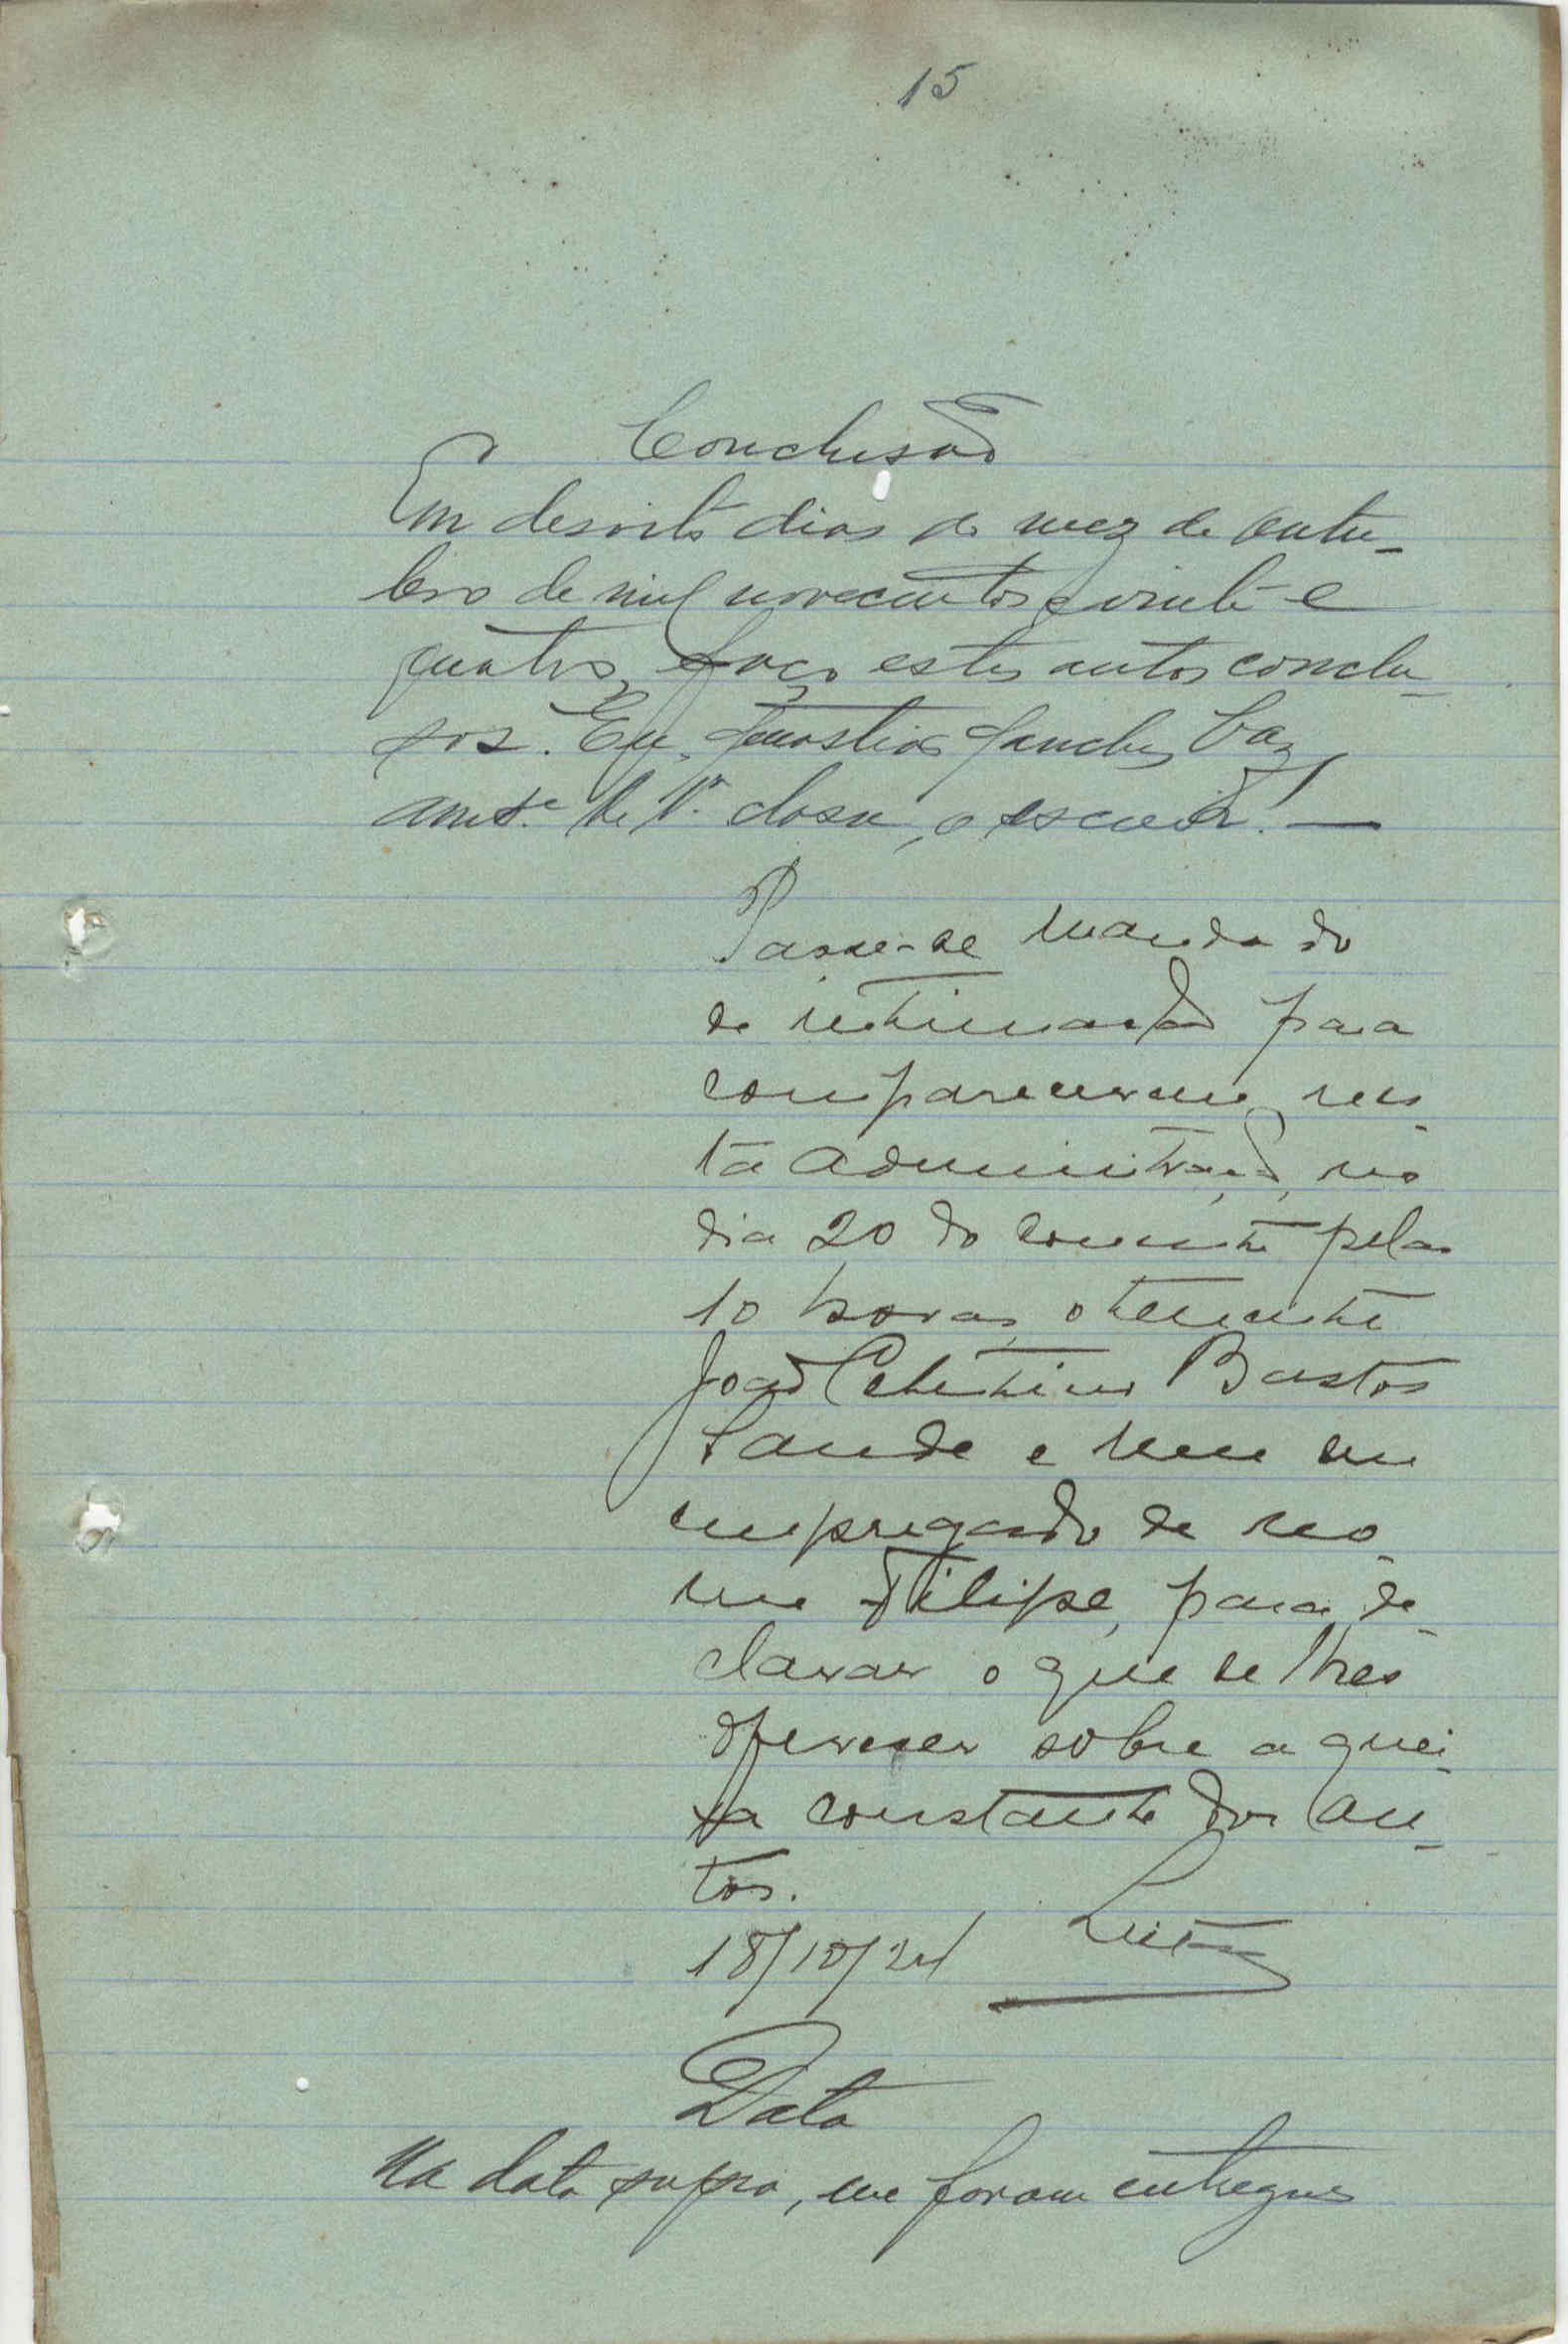 15
Conclusão
Em desoito dias do mez de outu-
bro de mil novecentos e vinte e
quatro, faço estes autos conclu-
sos. Eu, Sanches Vaz,
amte. de 1ª classe, o escrevi. —
Passe-se mandado
de intimação para
comparecerem, nes-
ta administração, no
dia 20 do corrente pelas
10 horas, o tenente
João Celestino Bastos
e um seu
empregado de no-
me Filipe, para de-
clarar o que se lhes
oferecer sobre a quei-
xa constante dos au-
tos.
18/10/24
Data
Na data supra, me foram entregues